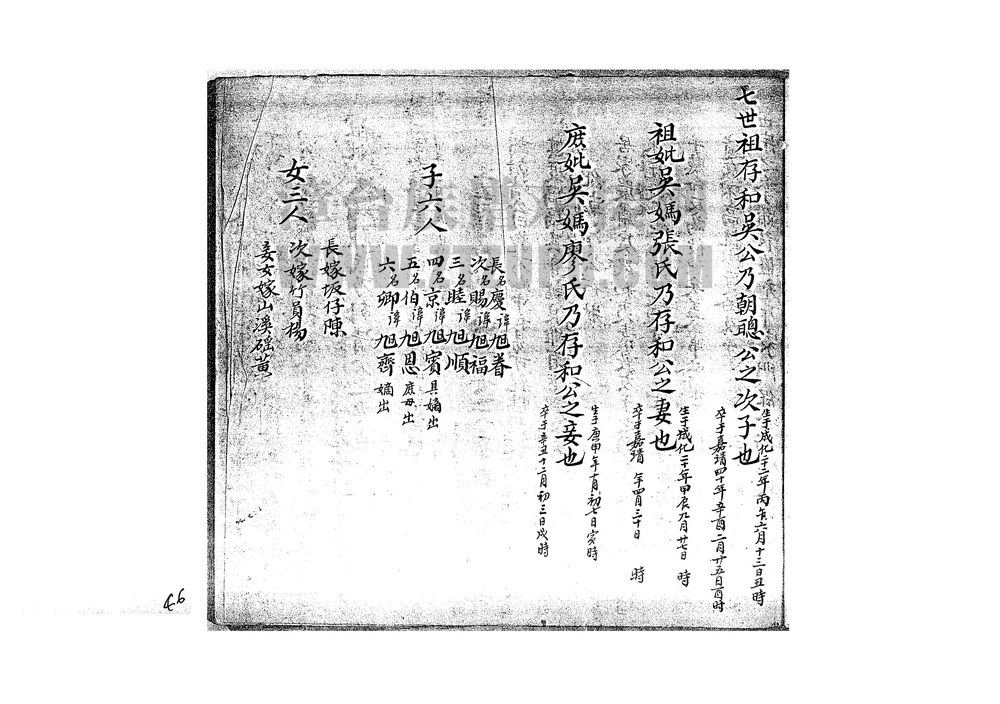 七世祖存和吳公乃朝聰公之次子也
生于成化二十二年丙午六月十三日丑時
卒于嘉靖四十年辛酉二月廿五日酉時
祖妣吳媽張氏乃存和公之妻也
生于成化二十年甲辰九月廿七日 時
卒于嘉靖 年四月三十日 時
庶妣吳媽廖氏乃存和公之妾也
生于庚申年十月初七日寅時
卒于辛丑十二月初三日戌時
子六人
長名慶諱旭養
次名賜諱旭福
三名睦諱旭順
四名京諱旭賓 具嫡出
五名伯諱旭恩 庶母出
六名卿諱旭齊 嫡出
女三人
長嫁坂仔陳
次嫁竹員楊
妾女嫁山溪磘黃
WWW.ZTZUPU.COM
46